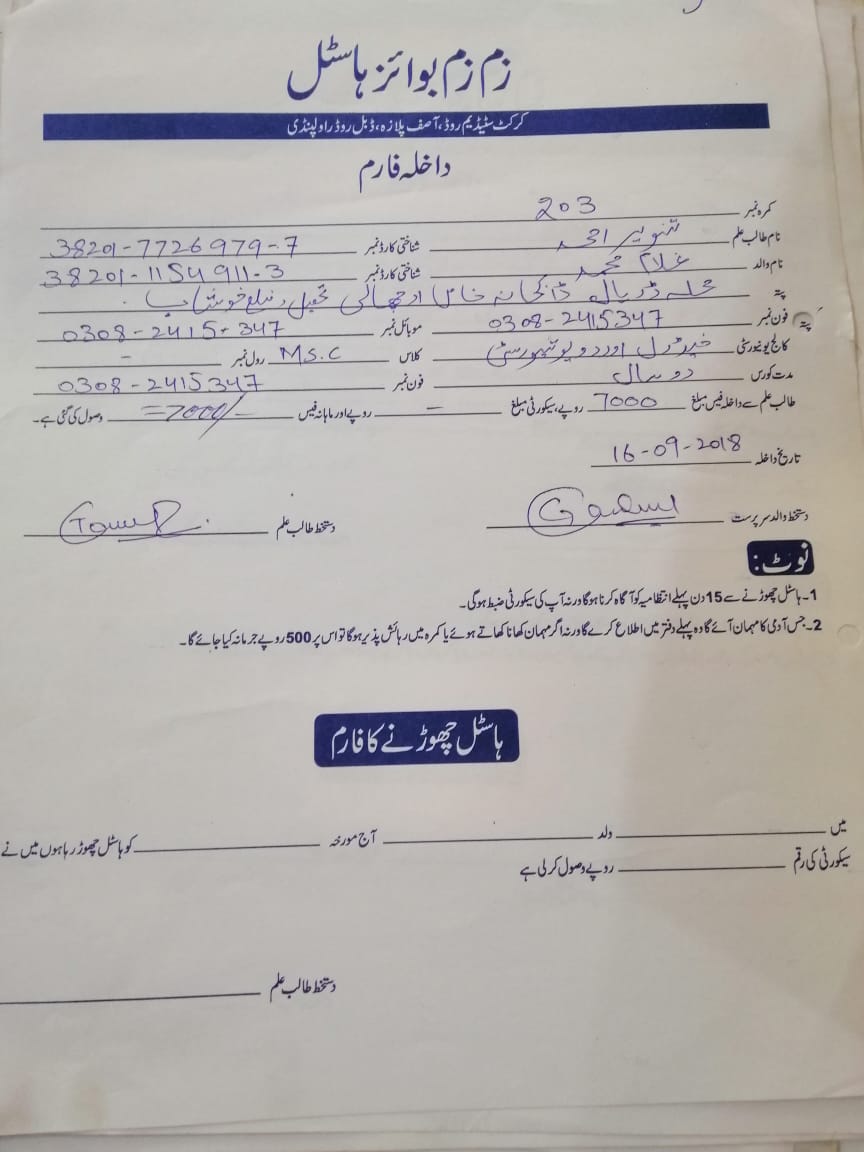 زم زم بوائز ہاسٹل
کرکٹ سٹیڈیم روڈ، آصف پلازہ، ڈبل روڈ راولپنڈی
داخلہ فارم
کمرہ نمبر 203
نام طالب علم تنویر احمد شناختی کارڈ نمبر 38201-7726979-7
نام والد غلام محمد شناختی کارڈ نمبر 38201-1154911-3
پتہ محلہ ڈھریال ڈاکخانہ خاص اوچھالی تحصیل و ضلع خوشاب
پتہ فون نمبر 0308-2415347 موبائل نمبر 0308-2415-347
کالج یونیورسٹی فیڈرل اوردو یونیورسٹی کلاس M.S.C رول نمبر -
مدت کورس دو سال فون نمبر 0308-2415347
طالب علم سے داخلہ فیس مبلغ 7000 روپے، سیکورٹی مبلغ - روپے اور ماہانہ فیس =7000/- وصول کی گئی ہے۔
تاریخ داخلہ 16-09-2018
دستخط والد سرپرست دستخط طالب علم
نوٹ:
1۔ ہاسٹل چھوڑنے سے 15 دن پہلے انتظامیہ کو آگاہ کرنا ہوگا ورنہ آپ کی سیکورٹی ضبط ہوگی۔
2۔ جس آدمی کا مہمان آئے گا وہ پہلے دفتر میں اطلاع کرے گا ورنہ اگر مہمان کھانا کھاتے ہوئے یا کمرہ میں رہائش پذیر ہوگا تو اس پر 500 روپے جرمانہ کیا جائے گا۔
ہاسٹل چھوڑنے کا فارم
میں ولد آج مورخہ کو ہاسٹل چھوڑ رہا ہوں میں نے
سیکورٹی کی رقم روپے وصول کر لی ہے
دستخط طالب علم